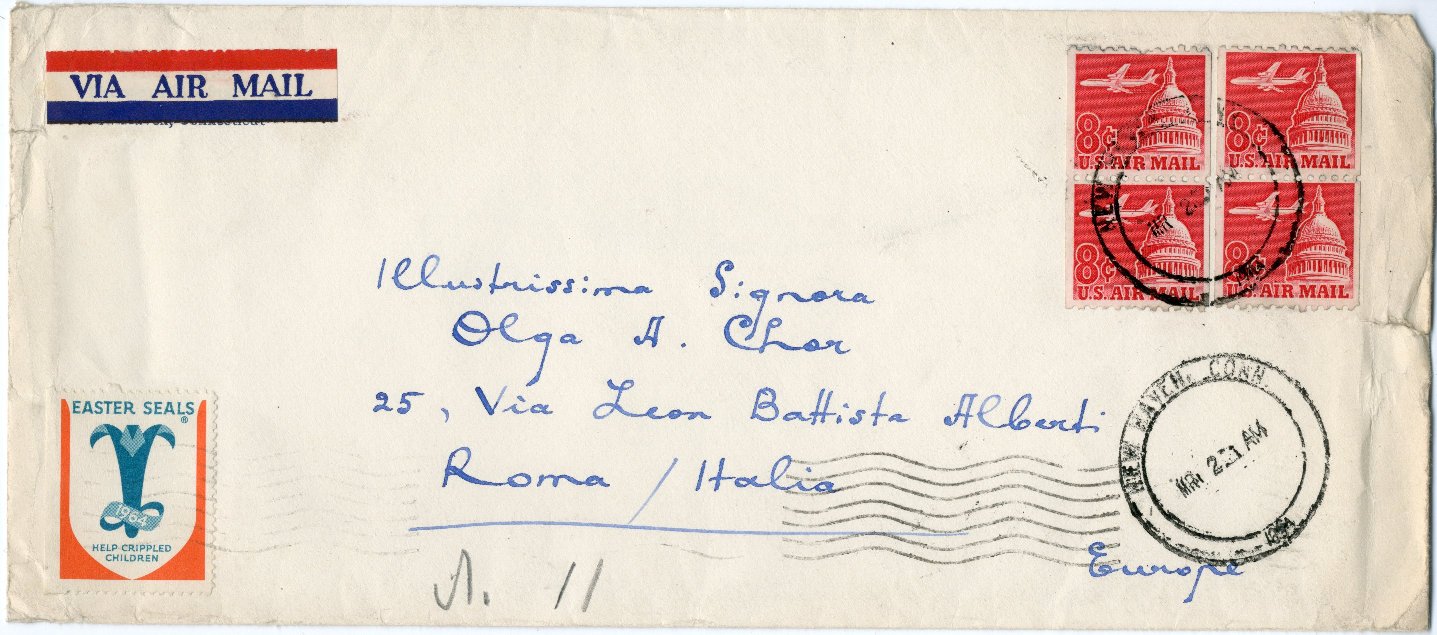 VIA AIR MAIL
Connecticut
8¢
U.S. AIR MAIL
8¢
U.S. AIR MAIL
8¢
U.S. AIR MAIL
8¢
U.S. AIR MAIL
NEW
AM
Illustrissima Signora
Olga A. Chor
25, Via Leon Battista Alberti
Roma / Italia
Europe
NEW HAVEN, CONN.
AM
1964
EASTER SEALS®
1964
HELP CRIPPLED
CHILDREN
A. 11